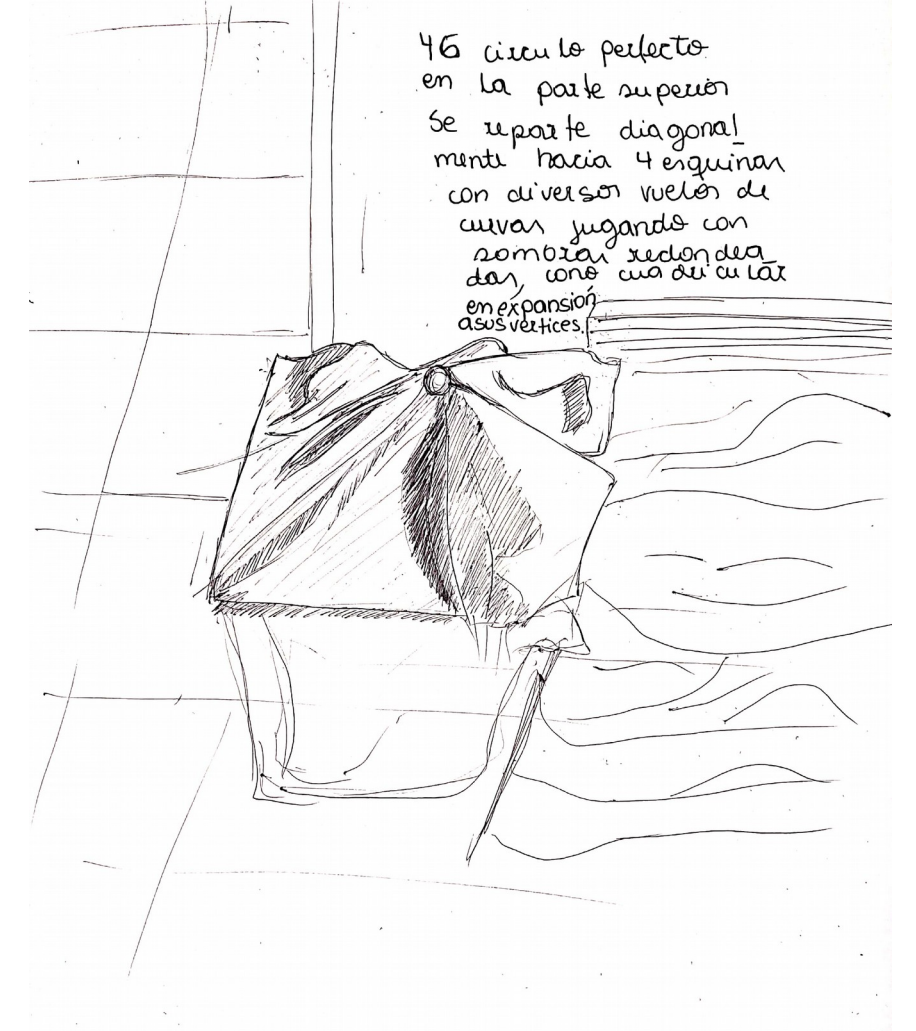 46 circulo perfecto
en la parte superior
se reparte diagonal_
mente hacia 4 esquinas
con diversos vuelos de
curvas jugando con
sombras redondea_
das, cono cuadricular
en expansión
a sus vertices.